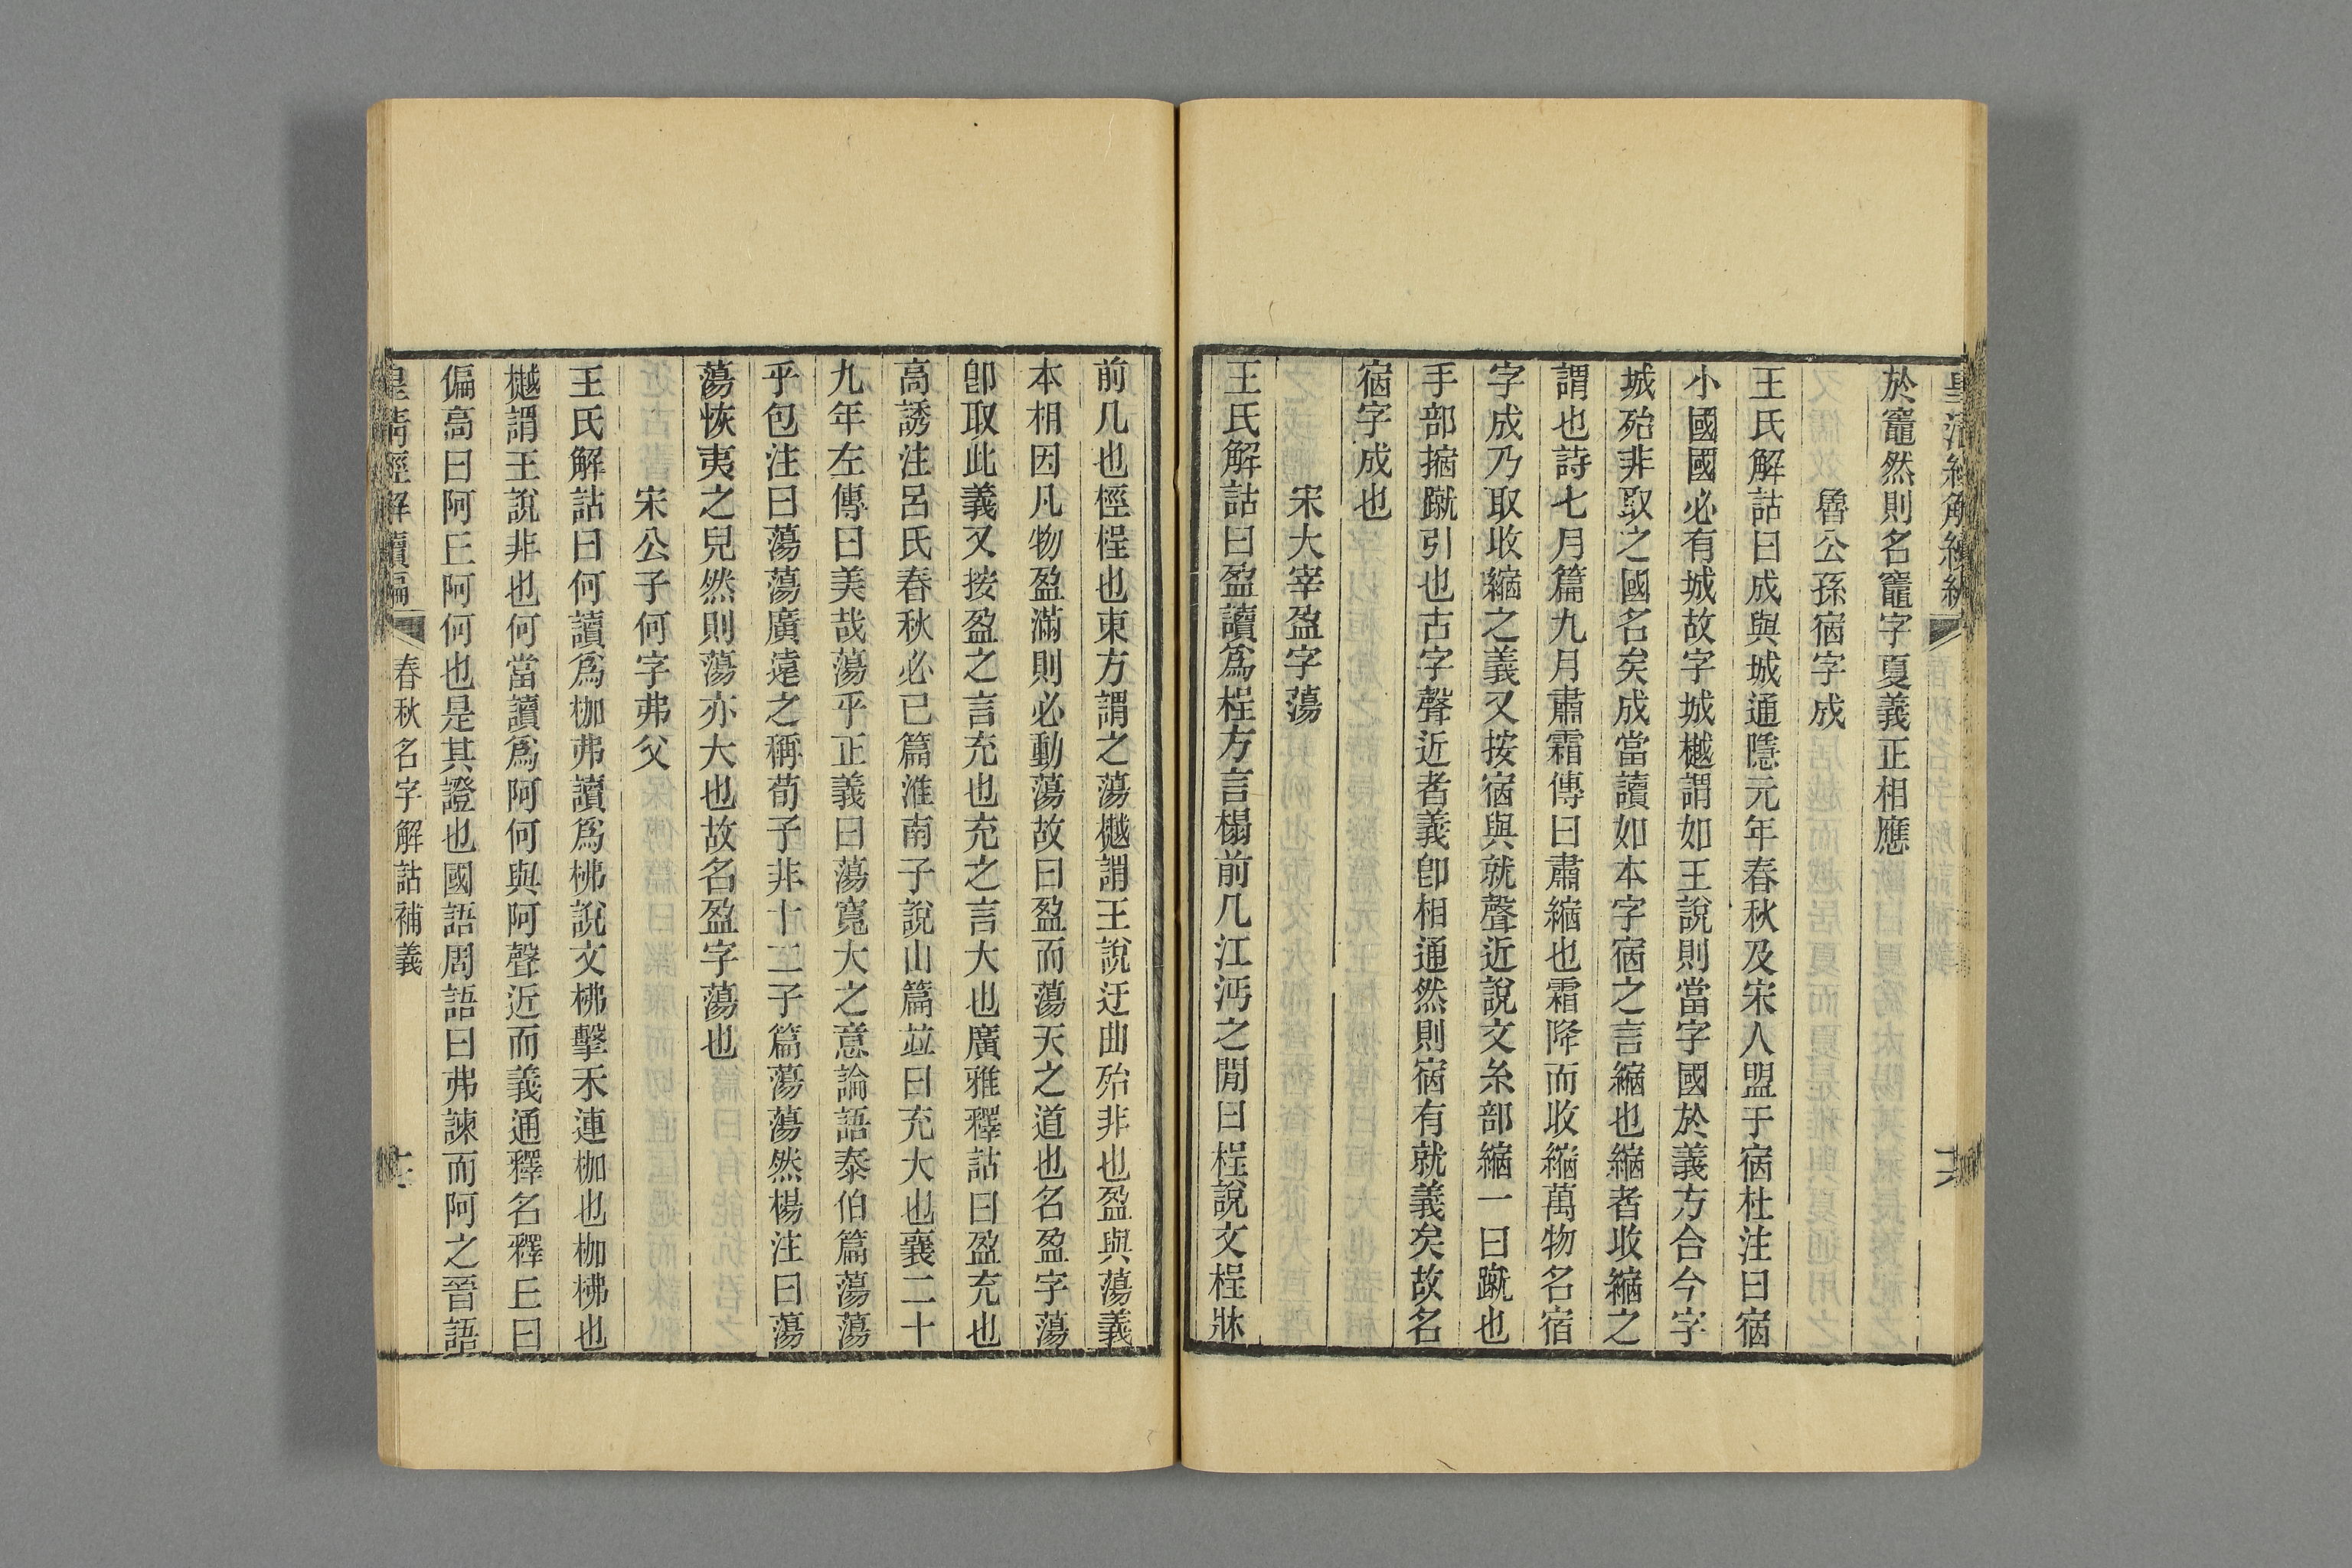 於竈然則名竈字夏義正相應
魯公孫宿字成
王氏解詁曰成與城通隱元年春秋及宋人盟于宿杜注曰宿
小國國必有城故字城樾謂如王說則當字國於義方合今字
城殆非取之國名矣成當讀如本字宿之言縮也縮者收縮之
謂也詩七月篇九月肅霜傳曰肅縮也霜降而收縮萬物名宿
字成乃取收縮之義又按宿與就聲近說文糸部縮一曰蹴也
手部摍蹴引也古字聲近者義卽相通然則宿有就義矣故名
宿字成也
宋大宰盈字蕩
王氏解詁曰盈讀爲桯方言榻前几江沔之閒曰桯說文桯牀
前几也桱桯也東方謂之蕩樾謂王說迂曲殆非也盈與蕩義
本相因凡物盈滿則必動蕩故曰盈而蕩天之道也名盈字蕩
卽取此義又按盈之言充也充之言大也廣雅釋詁曰盈充也
高誘注呂氏春秋必已篇淮南子說山篇竝曰充大也襄二十
九年左傳曰美哉蕩乎正義曰蕩寬大之意論語泰伯篇蕩蕩
乎包注曰蕩蕩廣遠之稱荀子非十二子篇蕩蕩然楊注曰蕩
蕩恢夷之皃然則蕩亦大也故名盈字蕩也
宋公子何字弗父
王氏解詁曰何讀爲枷弗讀爲柫說文柫擊禾連枷也枷柫也
樾謂王說非也何當讀爲阿何與阿聲近而義通釋名釋丘曰
偏高曰阿丘阿何也是其證也國語周語曰弗諫而阿之晉語
皇清經解續編
春秋名字解詁補義